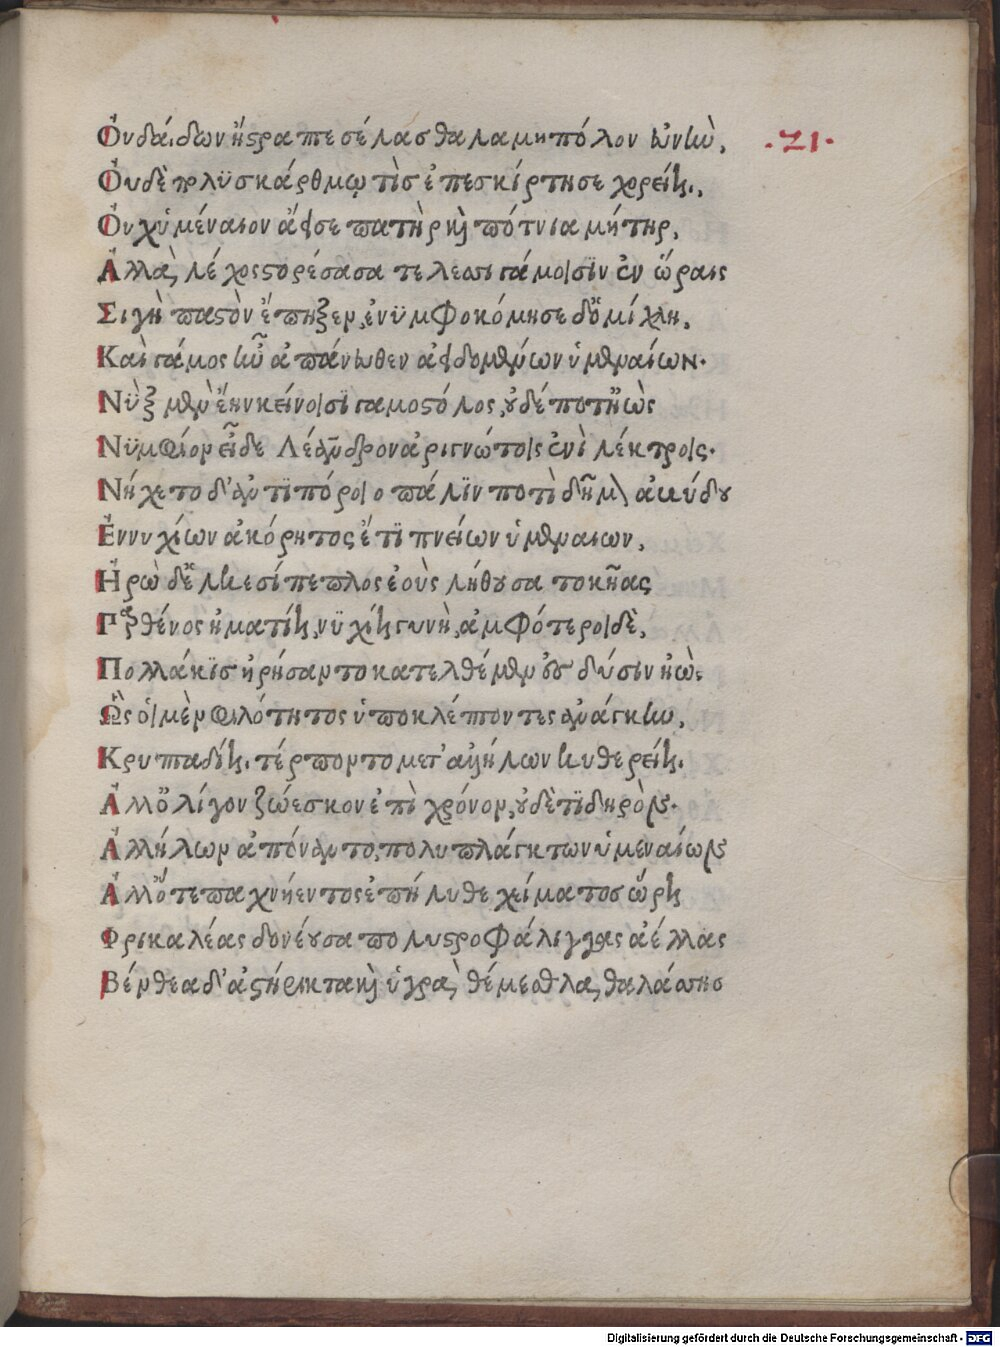 Ὀυ δαΐδων ἤστραπτε σέλας θαλαμηπόλον ἐυνὴν, ·21·
Ὀυδὲ πολυσκάρθμῳ τὶς ἐπεσκίρτησε χορείη.
Ὀυχ ὑμέναιον ἄεισε πατὴρ καὶ πότνια μήτηρ,
Ἀλλὰ λέχος στορέσασα τελεσσιγάμοισιν ἐν ὥραις
Σιγὴ παστὸν ἔπηξεν, ἐνυμφοκόμησε δ' ὁμίχλη,
Καὶ γάμος ἦν ἀπάνευθεν ἀειδομένων ὑμεναίων.
Νὺξ μὲν ἔην κείνοισι γαμοστόλος, οὐδέ ποτ' ἠὼς
Νυμφίον εἶδε Λέανδρον ἀριγνώτοις ἐνὶ λέκτροις.
Νήχετο δ' ἀντιπόροιο πάλιν ποτὶ δῆμον ἀβύδου
Ἐννυχίων ἀκόρητος ἔτι πνείων ὑμεναιων,
Ἡρὼ δ' ἑλκεσίπεπλος ἑοὺς λήθουσα τοκῆας
Παρθένος ἠματίη, νυχίη γυνὴ, ἀμφότεροι δὲ,
Πολλάκις ἠρήσαντο κατελθέμεν ἐς δύσιν ἠῶ.
Ὣς οἱ μὲν φιλότητος ὑποκλέπτοντες ἀνάγκην,
Κρυπταδίη. τέρποντο μετ' ἀλλήλων κυθερείη.
Ἀλλ' ὀλίγον ζώεσκον ἐπὶ χρόνον, οὐδὲ τι δηρὸν.
Ἀλλήλων ἀπόναντο, πολυπλάγκτων ὑμεναίων
Ἀλλ' ὅτε παχνήεντος ἐπήλυθε χείματος ὥρη
Φρικαλέας δονέουσα πολυστροφάλιγγας ἀέλλας
Βένθεα δ' ἀστήρικτα καὶ ὑγρὰ θέμεθλα, θαλάσσης
Digitalisierung gefördert durch die Deutsche Forschungsgemeinschaft - DFG